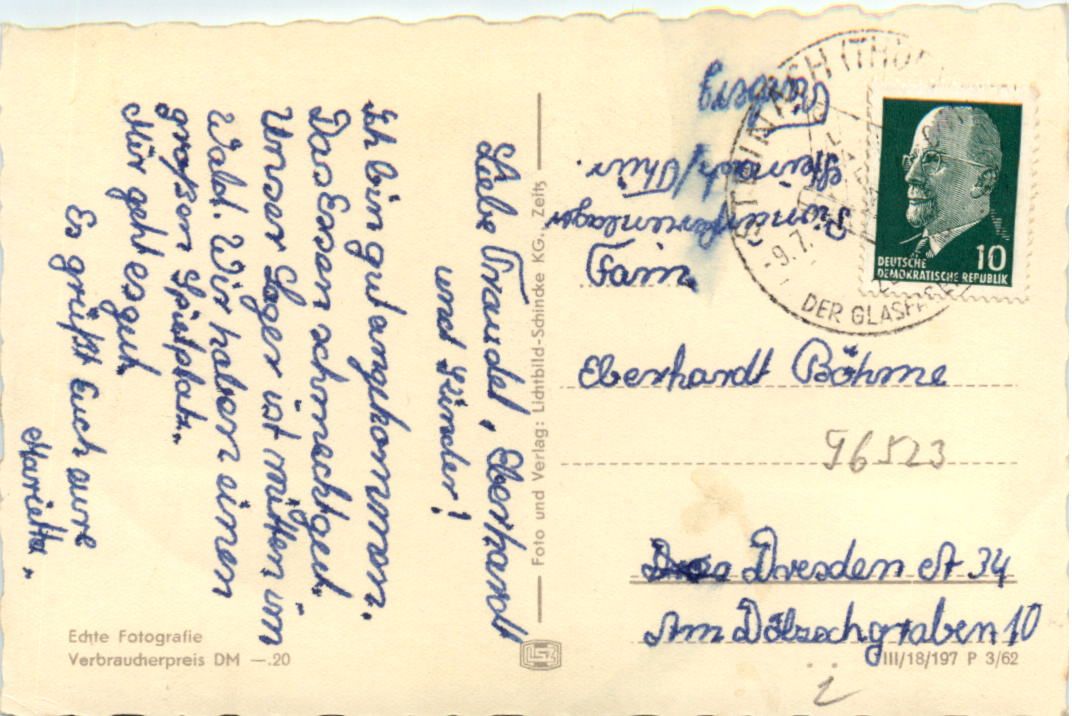 Liebe Traudel, Eberhardt
und Kinder!
Ich bin gut angekommen.
Das Essen schmeckt gut.
Unser Lager ist mitten im
Wald. Wir haben einen
großen Spielplatz.
Mir geht es gut.
Es grüßt Euch eure
Marietta.
Echte Fotografie
Verbraucherpreis DM —.20
Foto und Verlag: Lichtbild-Schincke KG., Zeitz
Pionierferienlager
Steinach/Thür.
STEINACH (THÜR
-9.7.
DER GLAS
10
DEUTSCHE
DEMOKRATISCHE REPUBLIK
Fam.
Eberhardt Böhme
96523
Dresden A 34
Am Dölzschgraben 10
III/18/197 P 3/62